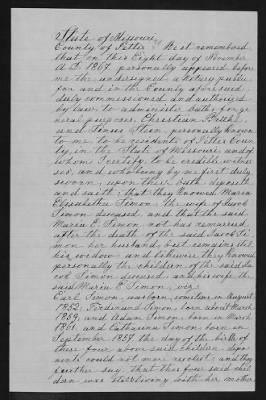 State of Missouri
County of Pettis } Be it remembered
that on this Eight day of November
A.D. 1867 personally appeared before
me the undersigned a Notary public
for and in the County aforesaid
duly commissioned and authorized
by law to administer oaths for ge-
neral purposes. Christian
and personally known
to me to be residents of Pettis Coun-
ty, in the State of Missouri and
whom I certify to be credible witnes-
ses, and who being by me first duly
sworn upon their oath deposeth
and saith: that they knowed Maria
Elisabetha Simon the wife of Jacob
Simon deceased, and that she said
Maria E. Simon not has remarried
after the death of the said Jacob Si-
mon her husband, but remains still
his widow and believes they knowed
personally the children of the said Ja-
cob Simon deceased and his wife the
said Maria E. Simon, viz:
Earl Simon, was born, sometime in August
1852, Ferdinand Simon, born about March
1859, and Adam Simon, born in March
1861 and Catharina Simon born in
September 1857 the day of the birth of
these four above said children depo-
nents could not more recollect; and they
further say, that these four said chil-
dren was still living with her mother